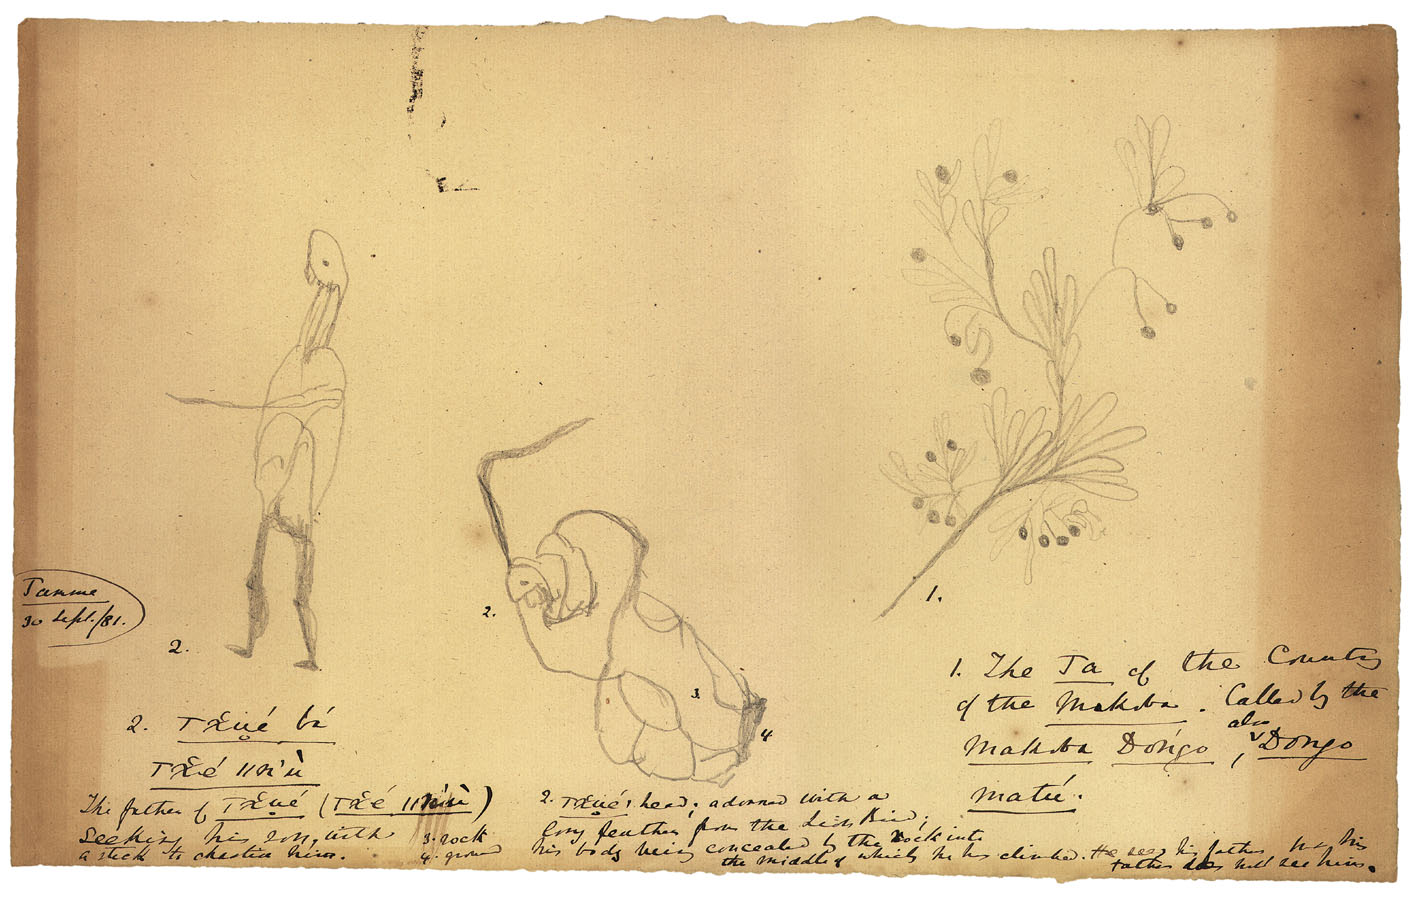 Tamme
30 Sept./81.
2.
2.
3.
4
1.
2. Tǎ̤ué bá
Tǎ̤é ‖n'ù
The father of Tǎ̤ué (Tǎ̤é ‖n'ù)
seeking his son, with
a stick to chastise him.
3. rock
4. ground
2. Tǎ̤ué's head, adorned with a
long feather, from the Bird;
his body being concealed by the rock into
the middle of which he has climbed. He sees his father but his
father does not see him.
1. The Ta of the Country
of the Makoba. Called by the
Makoba Dóngo, also Dongo
matú.